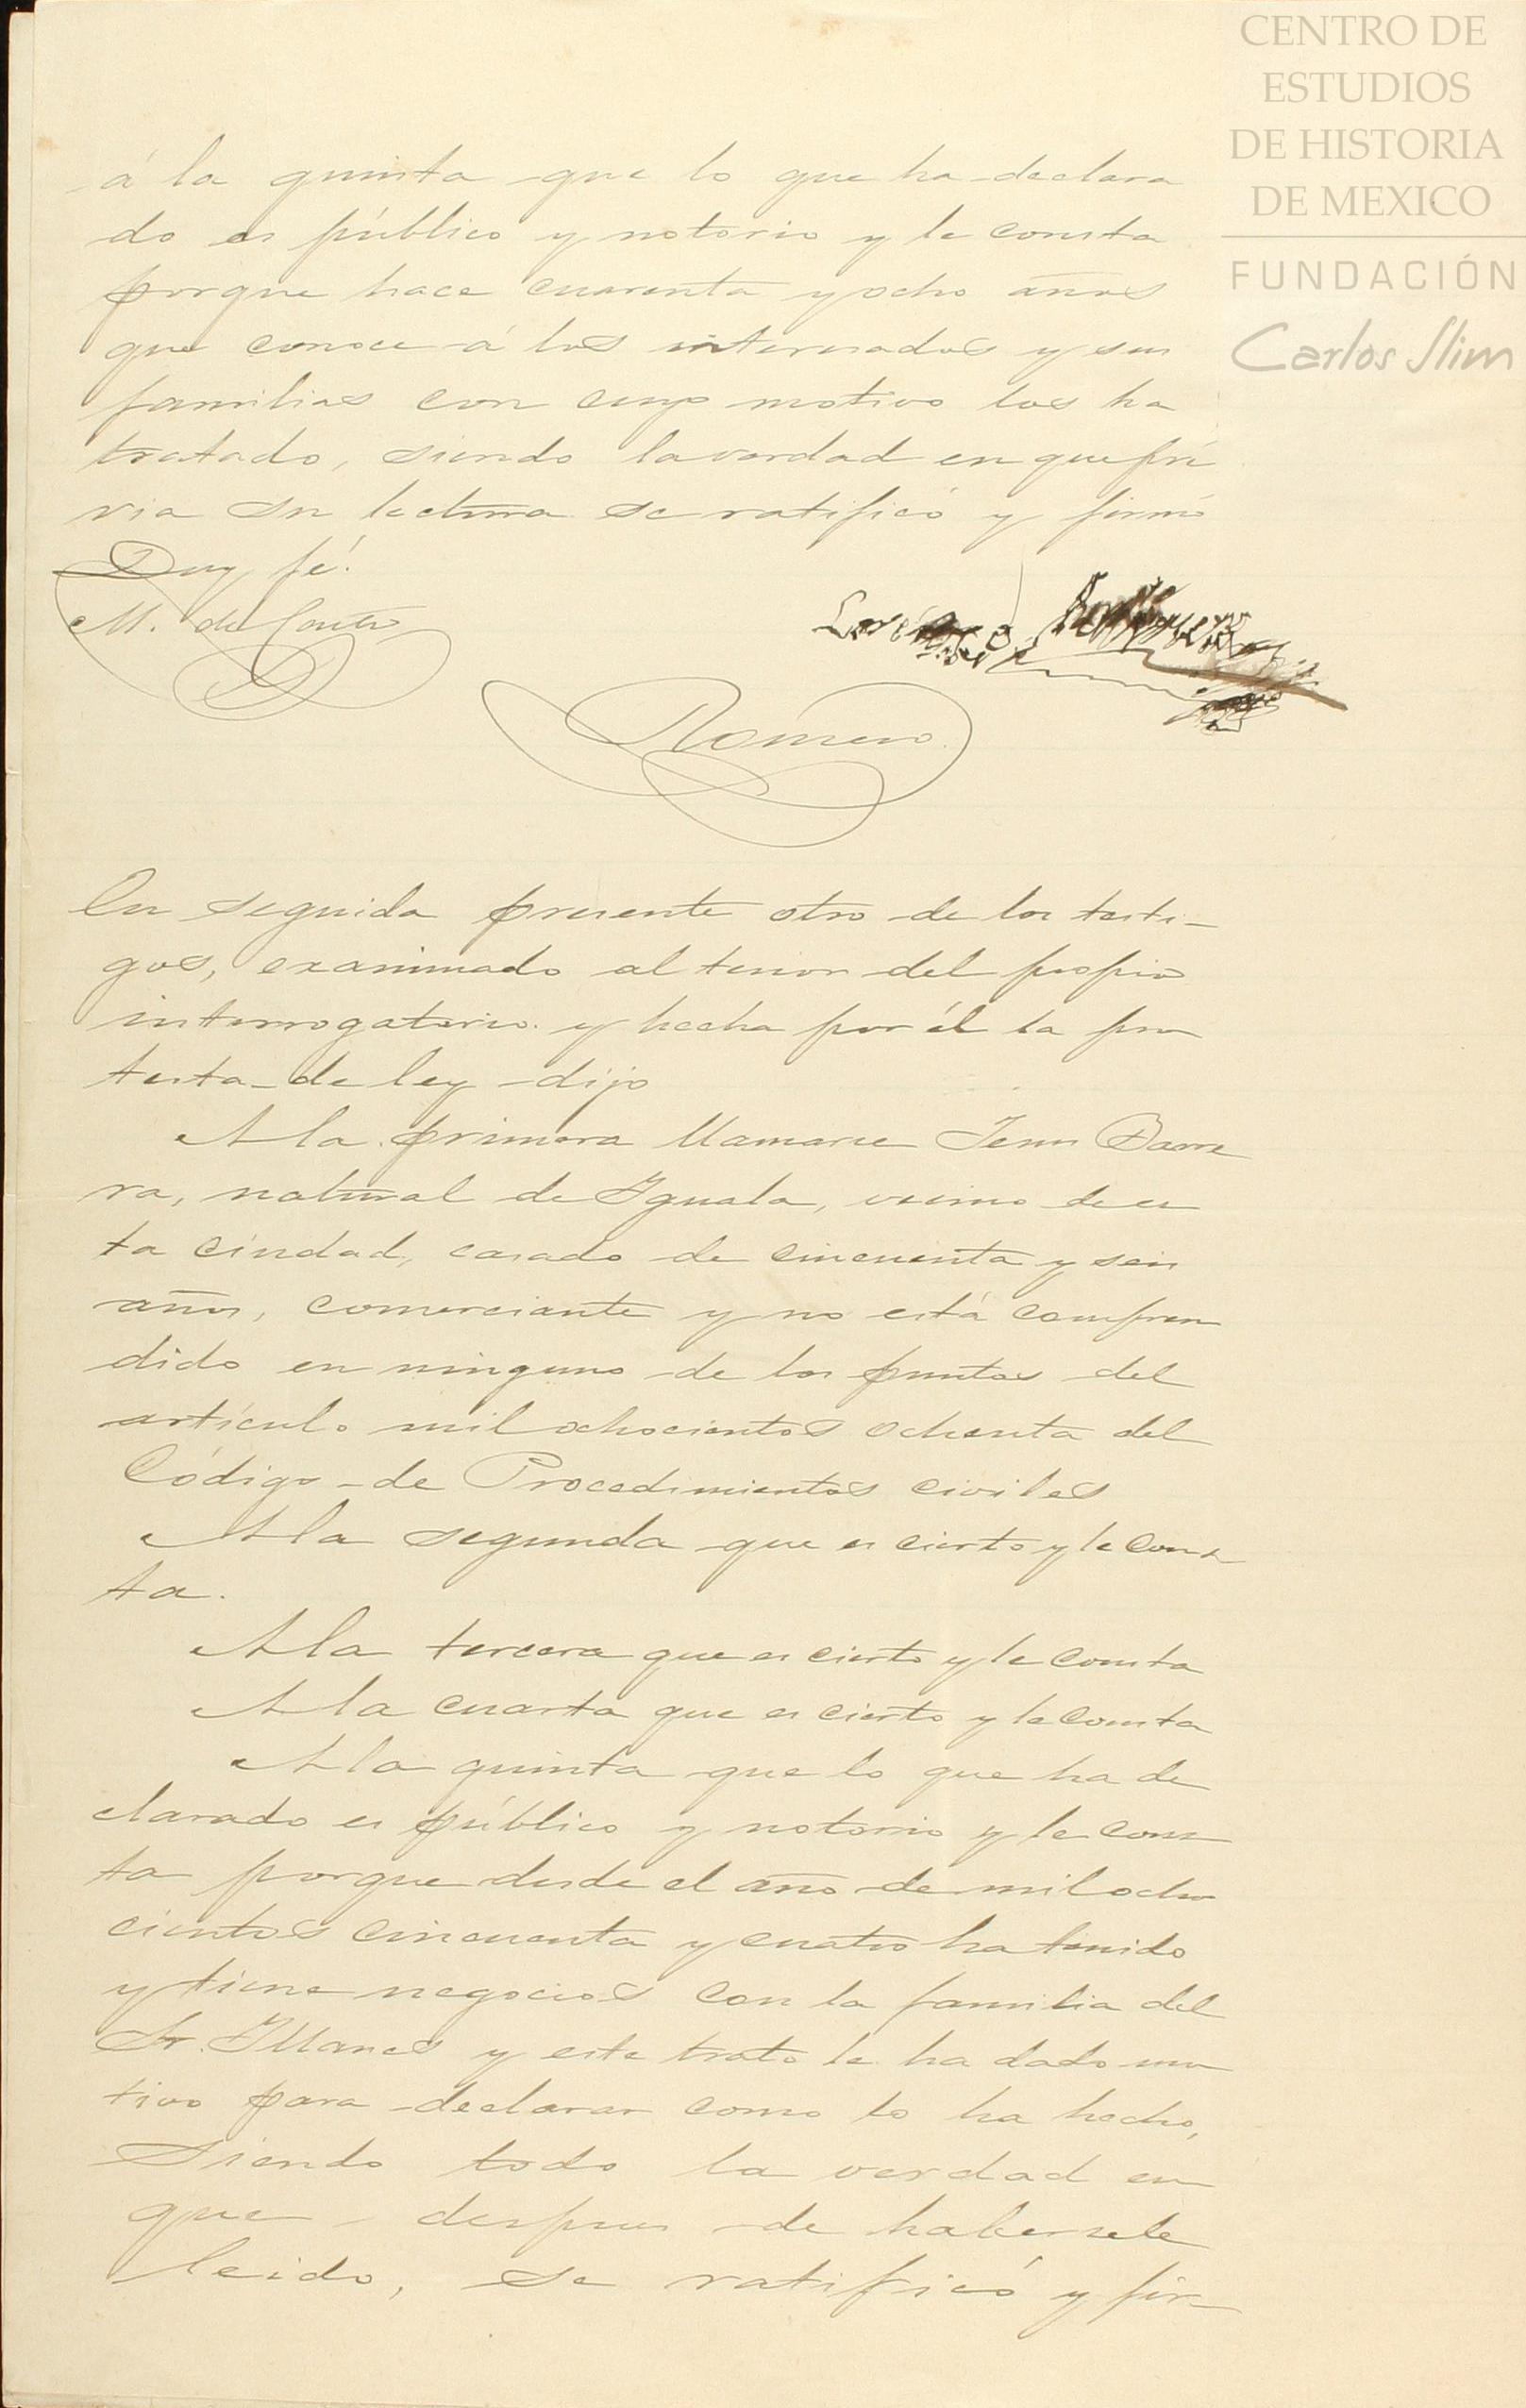 CENTRO DE
ESTUDIOS
DE HISTORIA
DE MEXICO
FUNDACIÓN
Carlos Slim
á la quinta que lo que ha declara
do es público y notorio y le consta
porque hace cuarenta y ocho años
que conoce á los interesados y sus
familias con cuyo motivo los ha
tratado, siendo la verdad en que pré
via su lectura se ratificó y firmó
Doy fé.
M. de Castro
Romero
En seguida presente otro de los testi-
gos, examinado al tenor del propio
interrogatorio y hecha por él la pro
testa de ley dijo
A la primera llamarse Jesus Barre
ra, natural de Iguala, vecino de es
ta ciudad, casado de cincuenta y seis
años, comerciante y no está compren
dido en ninguno de los puntos del
artículo mil ochocientos ochenta del
Código de Procedimientos civiles
A la segunda que es cierto y le cons
ta.
A la tercera que es cierto y le consta
A la cuarta que es cierto y le consta
A la quinta que lo que ha de
clarado es público y notorio y le cons
ta porque desde el año de mil ocho
cientos cincuenta y cuatro ha tenido
y tiene negocios con la familia del
Sr. Illanes y este trato le ha dado mo
tivo para declarar como lo ha hecho,
Siendo todo la verdad en
que despues de habersele
leido, se ratificó y fir